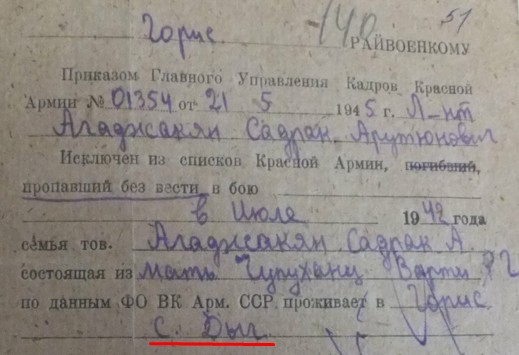 -140 51
Горис РАЙВОЕНКОМУ
Приказом Главного Управления Кадров Красной
Армии № 01354 от 21 5 1945 г. Л-нт
Агаджакян Садрак Арутюнович
Исключен из списков Красной Армии, погибший,
пропавший без вести в бою
в Июле 1942 года
семья тов. Агаджакян Садрак А.
состоящая из мать
по данным ФО ВК Арм. ССР проживает в Горис
с. Дыг